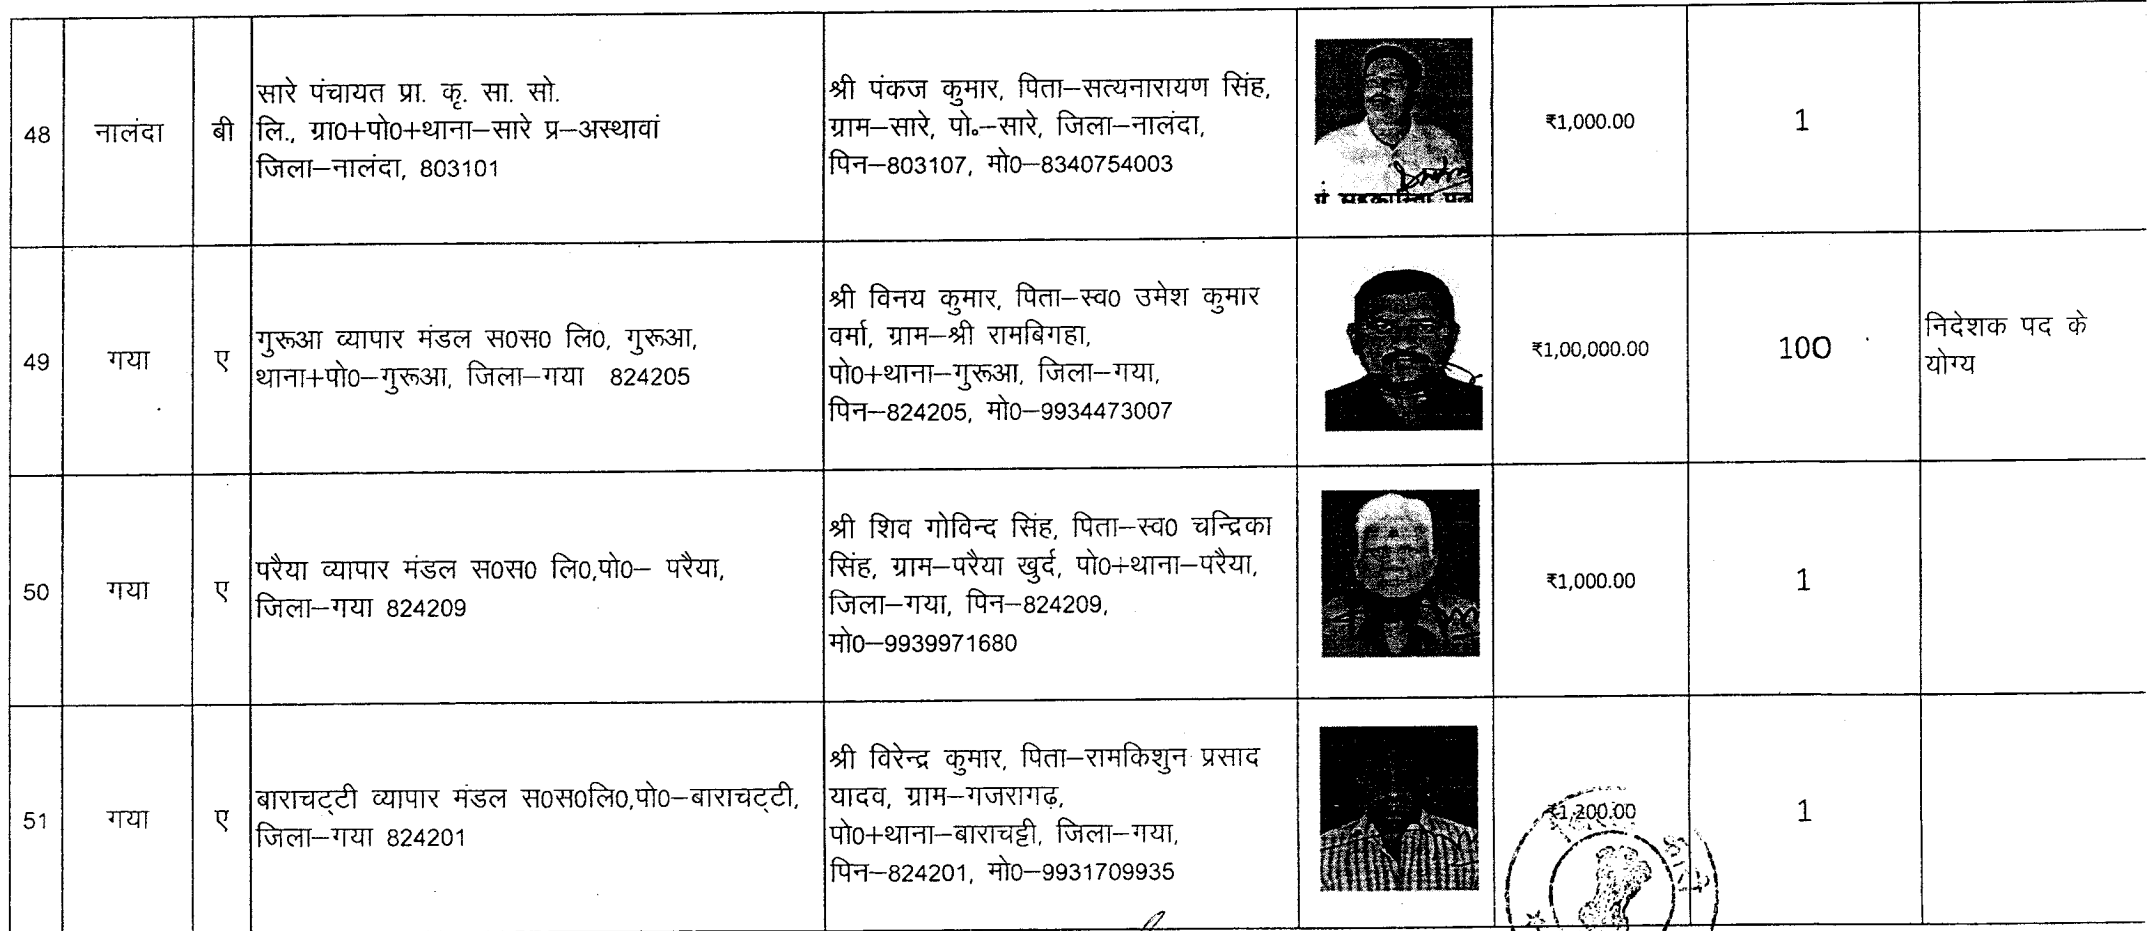 48
नालंदा
बी
सारे पंचायत प्रा. कृ. सा. सो.
लि., ग्रा0+पो0+थाना–सारे प्र–अस्थावां
जिला–नालंदा, 803101
श्री पंकज कुमार, पिता–सत्यनारायण सिंह,
ग्राम–सारे, पो०–सारे, जिला–नालंदा,
पिन–803107, मो0–8340754003
₹1,000.00
1
49
गया
ए
गुरूआ व्यापार मंडल स0स0 लि0, गुरूआ,
थाना+पो0–गुरूआ, जिला–गया 824205
श्री विनय कुमार, पिता–स्व0 उमेश कुमार
वर्मा, ग्राम–श्री रामबिगहा,
पो0+थाना–गुरूआ, जिला–गया,
पिन–824205, मो0–9934473007
₹1,00,000.00
100
निदेशक पद के
योग्य
50
गया
ए
परैया व्यापार मंडल स0स0 लि0,पो0– परैया,
जिला–गया 824209
श्री शिव गोविन्द सिंह, पिता–स्व0 चन्द्रिका
सिंह, ग्राम–परैया खुर्द, पो0+थाना–परैया,
जिला–गया, पिन–824209,
मो0–9939971680
₹1,000.00
1
51
गया
ए
बाराचट्टी व्यापार मंडल स0स0लि0,पो0–बाराचट्टी,
जिला–गया 824201
श्री विरेन्द्र कुमार, पिता–रामकिशुन प्रसाद
यादव, ग्राम–गजरागढ़,
पो0+थाना–बाराचट्टी, जिला–गया,
पिन–824201, मो0–9931709935
₹1,200.00
1